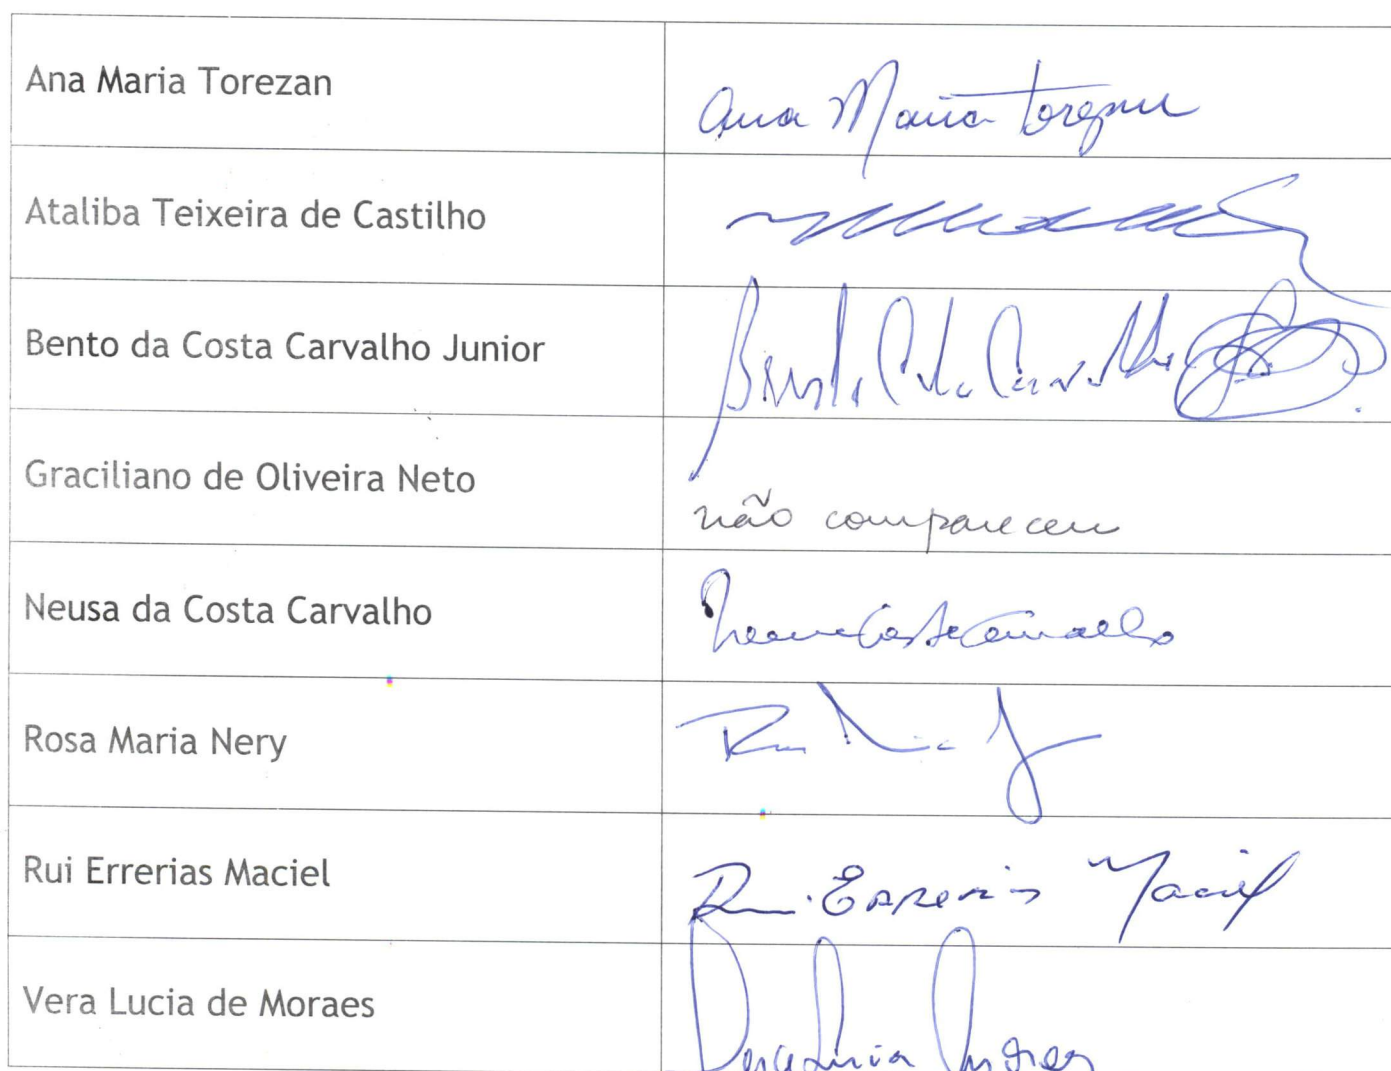 Ana Maria Torezan
Ana Maria Torezan
Ataliba Teixeira de Castilho
Bento da Costa Carvalho Junior
Bento Costa Carvalho
Graciliano de Oliveira Neto
não compareceu
Neusa da Costa Carvalho
Neusa Costa Carvalho
Rosa Maria Nery
Rui Errerias Maciel
Rui Errerias Maciel
Vera Lucia de Moraes
Vera Lucia Moraes